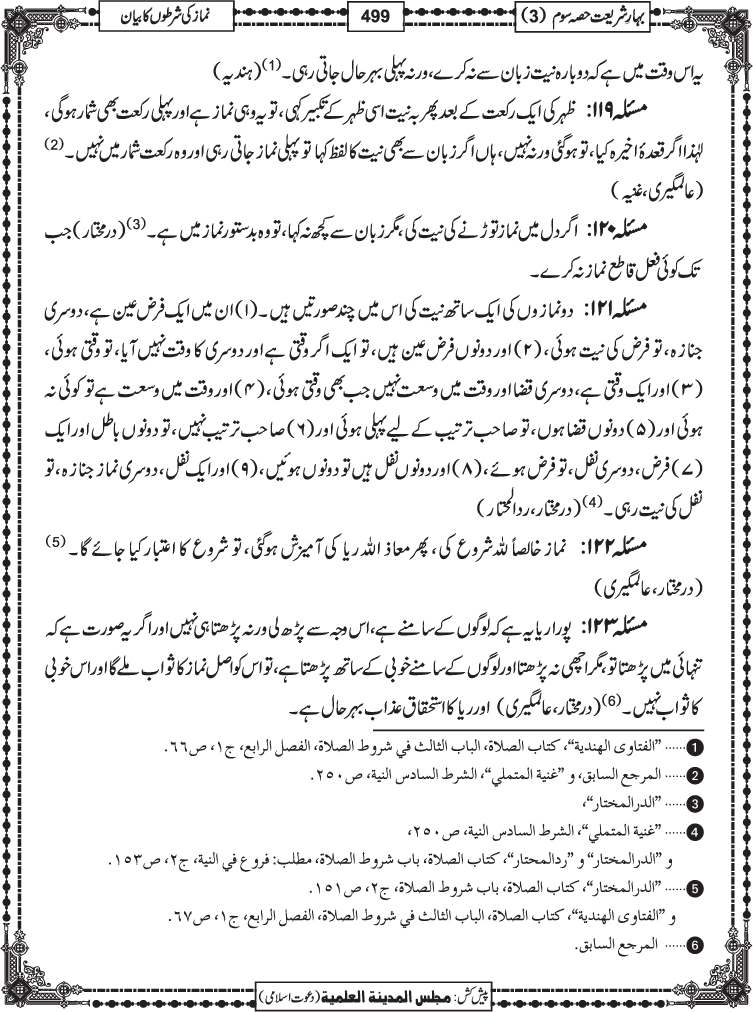 بہارِ شریعت حصہ سوم (3)
499
نماز کی شرطوں کا بیان
یہ اس وقت میں ہے کہ دوبارہ نیت زبان سے نہ کرے، ورنہ پہلی بہر حال جاتی رہی۔ (1) (ہندیہ)
مسئلہ ۱۱۹: ظہر کی ایک رکعت کے بعد پھر بہ نیت اسی ظہر کے تکبیر کہی، تو یہ وہی نماز ہے اور پہلی رکعت بھی شمار ہوگی،
لہٰذا اگر قعدۂ اخیرہ کیا، تو ہوگئی ورنہ نہیں، ہاں اگر زبان سے بھی نیت کا لفظ کہا تو پہلی نماز جاتی رہی اور وہ رکعت شمار میں نہیں۔ (2)
(عالمگیری، غنیہ)
مسئلہ ۱۲۰: اگر دل میں نماز توڑنے کی نیت کی، مگر زبان سے کچھ نہ کہا، تو وہ بدستور نماز میں ہے۔ (3) (درمختار) جب
تک کوئی فعل قاطع نماز نہ کرے۔
مسئلہ ۱۲۱: دو نمازوں کی ایک ساتھ نیت کی اس میں چند صورتیں ہیں۔ (۱) ان میں ایک فرض عین ہے، دوسری
جنازہ، تو فرض کی نیت ہوئی، (۲) اور دونوں فرض عین ہیں، تو ایک اگر وقتی ہے اور دوسری کا وقت نہیں آیا، تو وقتی ہوئی،
(۳) اور ایک وقتی ہے، دوسری قضا اور وقت میں وسعت نہیں جب بھی وقتی ہوئی، (۴) اور وقت میں وسعت ہے تو کوئی نہ
ہوئی اور (۵) دونوں قضا ہوں، تو صاحب ترتیب کے لیے پہلی ہوئی اور (۶) صاحب ترتیب نہیں، تو دونوں باطل اور ایک
(۷) فرض، دوسری نفل، تو فرض ہوئے، (۸) اور دونوں نفل ہیں تو دونوں ہوئیں، (۹) اور ایک نفل، دوسری نماز جنازہ، تو
نفل کی نیت رہی۔ (4) (درمختار، ردالمحتار)
مسئلہ ۱۲۲: نماز خالصاً للہ شروع کی، پھر معاذ اللہ ریا کی آمیزش ہوگئی، تو شروع کا اعتبار کیا جائے گا۔ (5)
(درمختار، عالمگیری)
مسئلہ ۱۲۳: پورا ریا یہ ہے کہ لوگوں کے سامنے ہے، اس وجہ سے پڑھ لی ورنہ پڑھتا ہی نہیں اور اگر یہ صورت ہے کہ
تنہائی میں پڑھتا تو، مگر اچھی نہ پڑھتا اور لوگوں کے سامنے خوبی کے ساتھ پڑھتا ہے، تو اس کو اصل نماز کا ثواب ملے گا اور اس خوبی
کا ثواب نہیں۔ (6) (درمختار، عالمگیری) اور ریا کا استحقاق عذاب بہر حال ہے۔
1 ...... ”الفتاوی الهندية“، كتاب الصلاة، الباب الثالث في شروط الصلاة، الفصل الرابع، ج١، ص٦٦.
2 ...... المرجع السابق، و ”غنية المتملي“، الشرط السادس النية، ص٢٥٠.
3 ...... ”الدرالمختار“،
4 ...... ”غنية المتملي“، الشرط السادس النية، ص٢٥٠،
و ”الدرالمختار“ و ”ردالمحتار“، كتاب الصلاة، باب شروط الصلاة، مطلب: فروع في النية، ج٢، ص١٥٣.
5 ...... ”الدرالمختار“، كتاب الصلاة، باب شروط الصلاة، ج٢، ص١٥١.
و ”الفتاوی الهندية“، كتاب الصلاة، الباب الثالث في شروط الصلاة، الفصل الرابع، ج١، ص٦٧.
6 ...... المرجع السابق.
پیش کش: مجلس المدینة العلمیة (دعوت اسلامی)